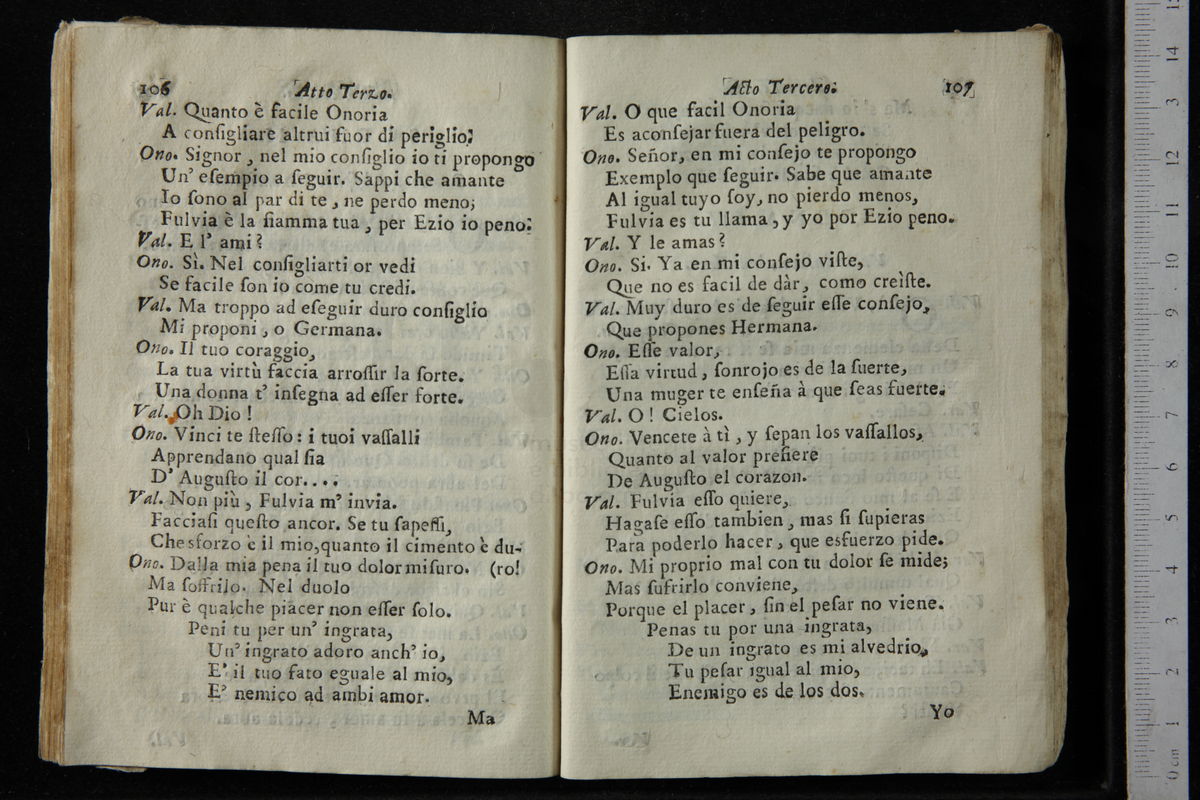 106 Atto Terzo.
Val. Quanto è facile Onoria
A conſigliare altrui fuor di periglio!
Ono. Signor, nel mio conſiglio io ti propongo
Un' eſempio a ſeguir. Sappi che amante
Io ſono al par di te, ne perdo meno;
Fulvia è la fiamma tua, per Ezio io peno.
Val. E l' ami?
Ono. Sì. Nel conſigliarti or vedi
Se facile ſon io còme tu credi.
Val. Ma troppo ad eſeguir duro conſiglio
Mi proponi, o Germana.
Ono. Il tuo coraggio,
La tua virtù faccia arroſſir la ſorte.
Una donna t' inſegna ad eſſer forte.
Val. Oh Dio!
Ono. Vinci te ſteſſo: i tuoi vaſſalli
Apprendano qual ſia
D' Auguſto il cor....
Val. Non più, Fulvia m' invia.
Facciaſi queſto ancor. Se tu ſapeſſi,
Che sforzo è il mio, quanto il cimento è du-
Ono. Dalla mia pena il tuo dolor miſuro. (ro!
Ma ſoffrilo. Nel duolo
Pur è qualche piacer non eſſer ſolo.
Peni tu per un' ingrata,
Un' ingrato adoro anch' io,
E' il tuo fato eguale al mio,
E' nemico ad ambi amor.
Ma
Acto Tercero. 107
Val. O que facil Onoria
Es aconſejar fuera del peligro.
Ono. Señor, en mi conſejo te propongo
Exemplo que ſeguir. Sabe que amante
Al igual tuyo ſoy, no pierdo menos,
Fulvia es tu llama, y yo por Ezio peno.
Val. Y le amas?
Ono. Si. Ya en mi conſejo viſte,
Que no es facil de dàr, como creìſte.
Val. Muy duro es de ſeguir eſſe conſejo,
Que propones Hermana.
Ono. Eſſe valor,
Eſſa virtud, ſonrojo es de la ſuerte,
Una muger te enſeña à que ſeas fuerte.
Val. O! Cielos.
Ono. Vencete à tì, y ſepan los vaſſallos,
Quanto al valor prefiere
De Auguſto el corazon.
Val. Fulvia eſſo quiere,
Hagaſe eſſo tambien, mas ſi ſupieras
Para poderlo hacer, que esfuerzo pide.
Ono. Mi proprio mal con tu dolor ſe mide;
Mas ſufrirlo conviene,
Porque el placer, ſin el peſar no viene.
Penas tu por una ingrata,
De un ingrato es mi alvedrio,
Tu peſar igual al mio,
Enemigo es de los dos.
Yo